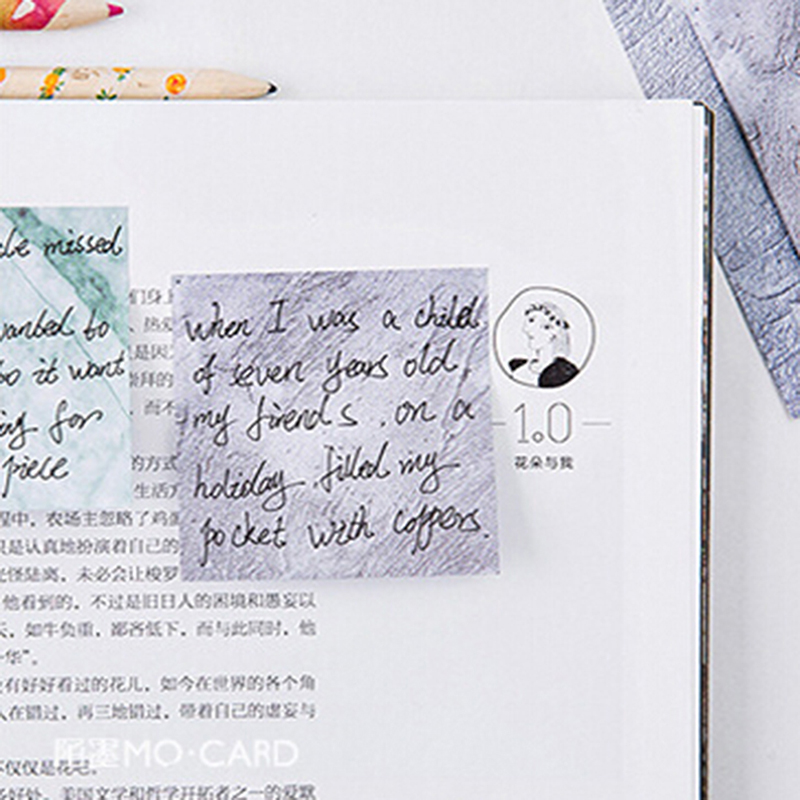 cle missed
wanted to
so it want
ing for
piece
when I was a child
of seven years old,
my firends, on a
holiday filled my
pocket with coppers.
1.0
花朵与我
们身上
、热爱
是因为
崇拜的
，而不
的方式
生活方
程中，农场主忽略了鸡蛋
只是认真地扮演着自己的
光怪陆离，未必会让梭罗
他看到的，不过是旧日人的困境和愚妄以
天，如牛负重，鄙吝低下，而与此同时，他
华”。
有好好看过的花儿，如今在世界的各个角
人在错过，再三地错过，带着自己的虚妄与
不仅仅是花吧。
多好处，美国文学和哲学开拓者之一的爱默
陌墨MO·CARD